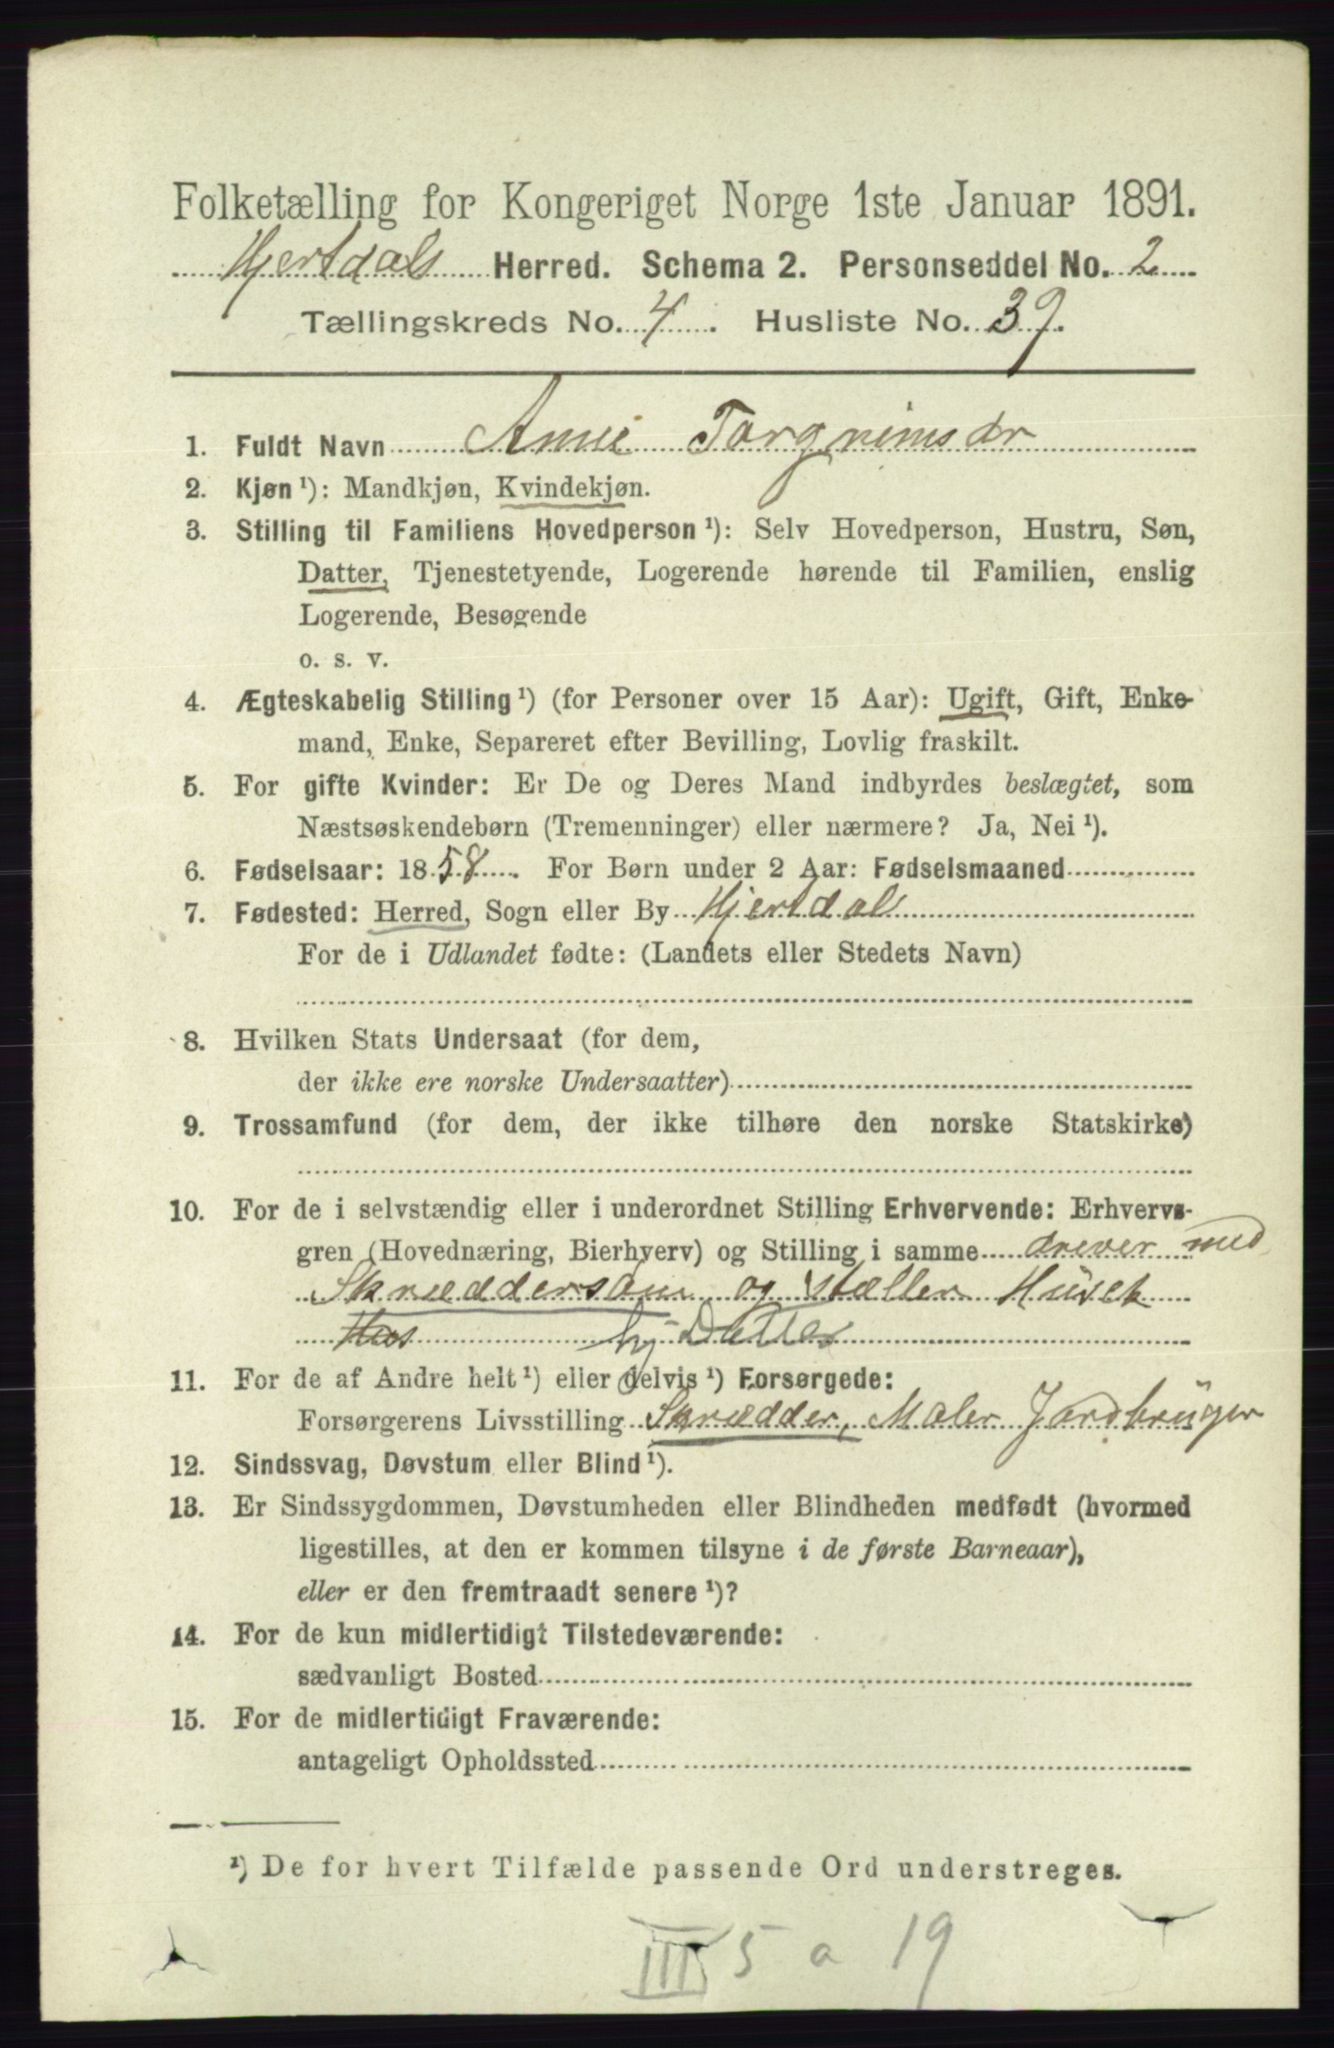 Folketælling for Kongeriget Norge 1ste Januar 1891.
Hjertdals Herred. Schema 2. Personseddel No. 2
Tællingskreds No. 4. Husliste No. 39.
1. Fuldt Navn Anne Torgrimsdr
2. Kjøn ¹): Mandkjøn, Kvindekjøn.
3. Stilling til Familiens Hovedperson ¹): Selv Hovedperson, Hustru, Søn,
Datter, Tjenestetyende, Logerende hørende til Familien, enslig
Logerende, Besøgende
o. s. v.
4. Ægteskabelig Stilling ¹) (for Personer over 15 Aar): Ugift, Gift, Enke-
mand, Enke, Separeret efter Bevilling, Lovlig fraskilt.
5. For gifte Kvinder: Er De og Deres Mand indbyrdes beslægtet, som
Næstsøskendebørn (Tremenninger) eller nærmere? Ja, Nei ¹).
6. Fødselsaar: 1858. For Børn under 2 Aar: Fødselsmaaned
7. Fødested: Herred, Sogn eller By Hjertdal
For de i Udlandet fødte: (Landets eller Stedets Navn)
8. Hvilken Stats Undersaat (for dem,
der ikke ere norske Undersaatter)
9. Trossamfund (for dem, der ikke tilhøre den norske Statskirke)
10. For de i selvstændig eller i underordnet Stilling Erhvervende: Erhvervs-
gren (Hovednæring, Bierhverv) og Stilling i samme drever med
Skræddersøm og stæller Huset
Hos hj Datter
11. For de af Andre helt ¹) eller delvis ¹) Forsørgede:
Forsørgerens Livsstilling Skrædder, Maler Jordbrüger
12. Sindssvag, Døvstum eller Blind ¹).
13. Er Sindssygdommen, Døvstumheden eller Blindheden medfødt (hvormed
ligestilles, at den er kommen tilsyne i de første Barneaar),
eller er den fremtraadt senere ¹)?
14. For de kun midlertidigt Tilstedeværende:
sædvanligt Bosted
15. For de midlertidigt Fraværende:
antageligt Opholdssted
¹) De for hvert Tilfælde passende Ord understreges.
III 5 a 19